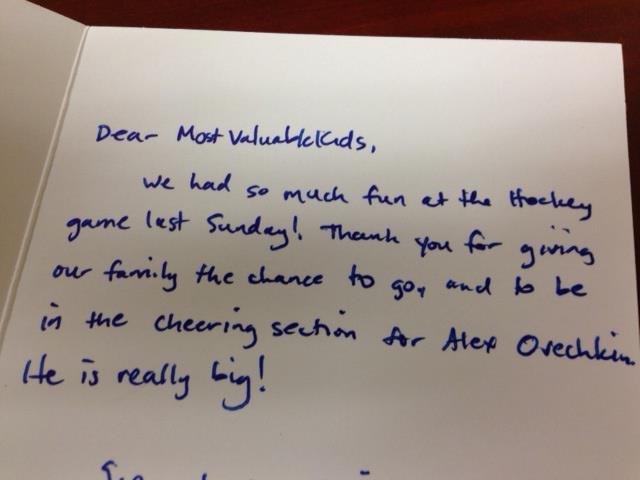 Dear Most Valuable Kids,
We had so much fun at the Hockey
game last Sunday! Thank you for giving
our family the chance to go, and to be
in the cheering section for Alex Ovechkin.
He is really big!